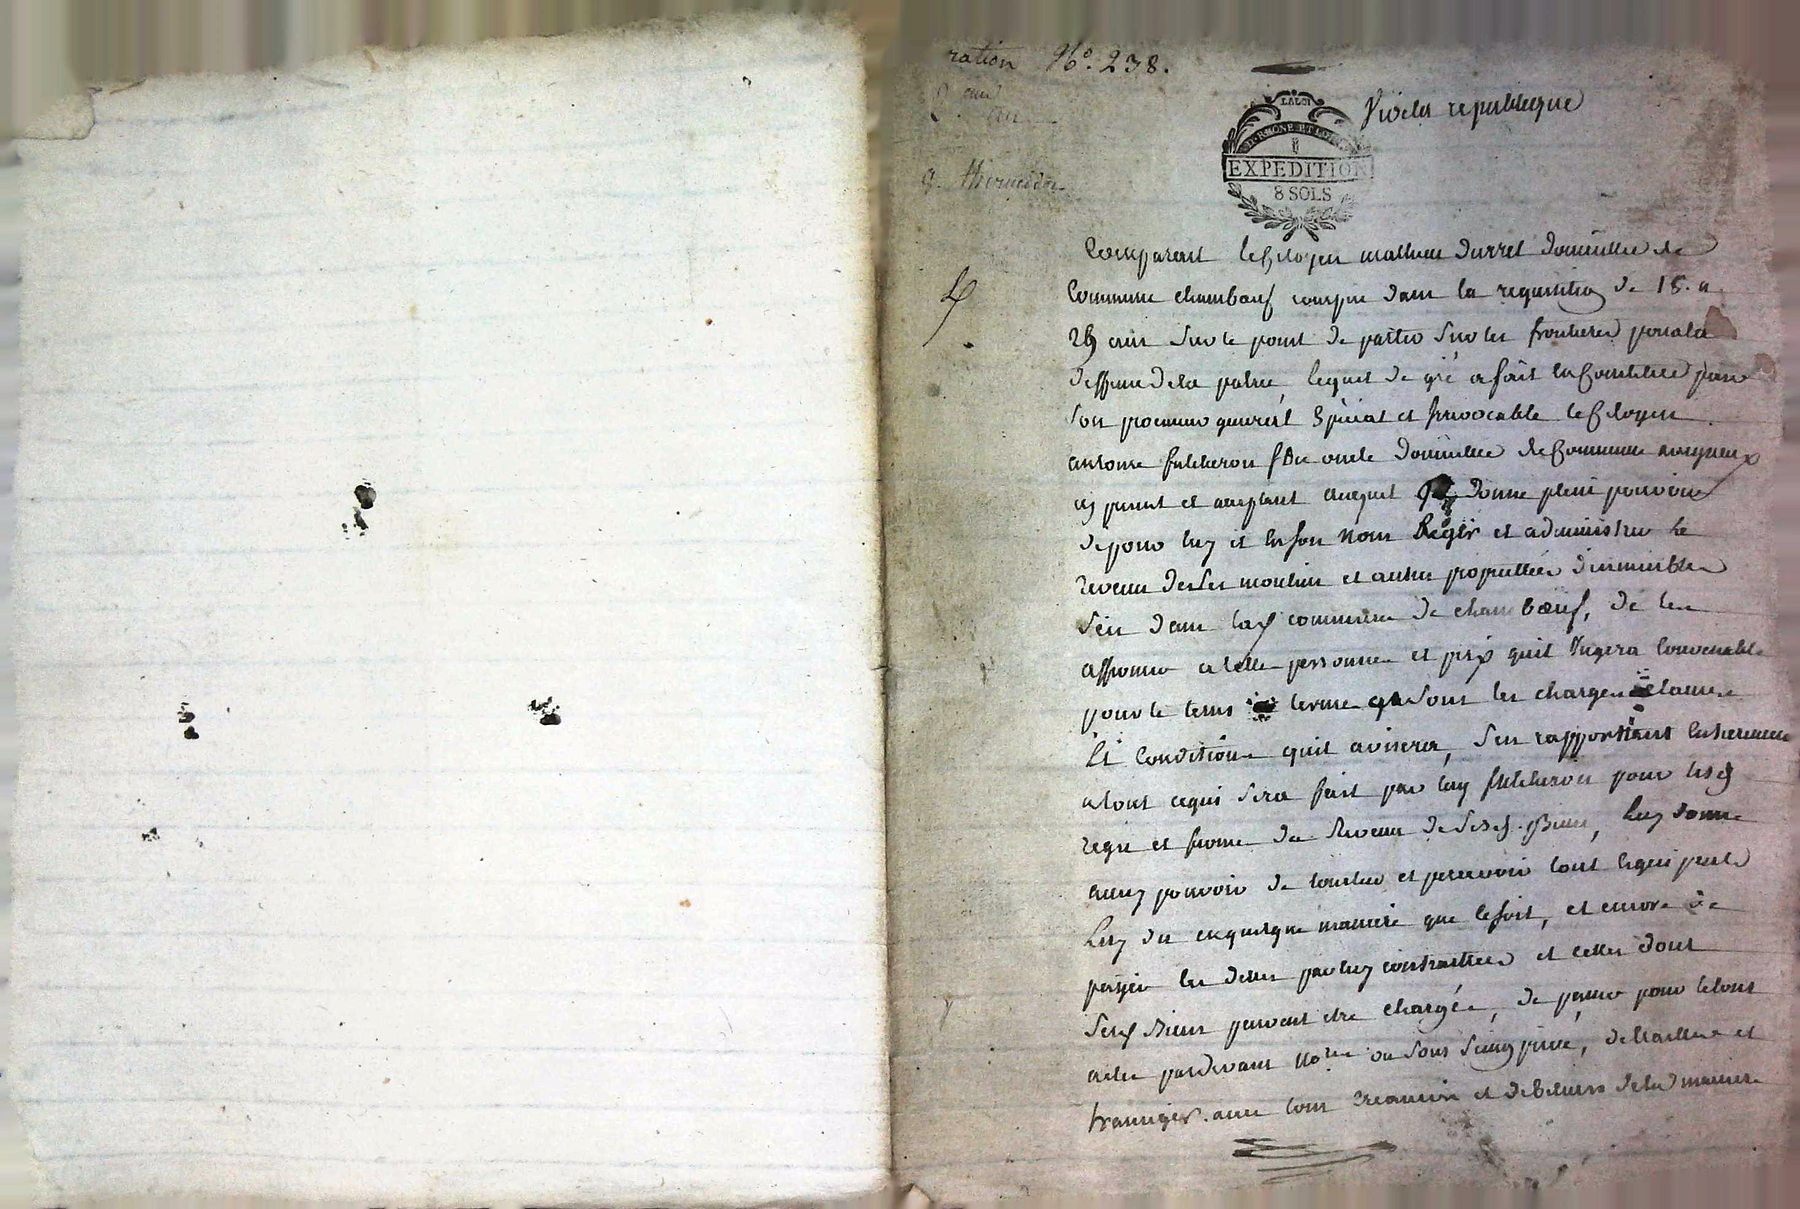 ration N°. 238.
Vive la republique
LA LOI
RHONE ET L
EXPEDITION
8 SOLS
9. thermidor
Comparant le Citoyen mathieu durret domicilié de
Commune chambœuf compris dans la requisition de 18. a
25 ans sur le point de partir sur les frontieres pour la
deffense de la patrie lequel de gré a fait en Constitué pour
son procureur general Special et Irrevocable le Citoyen
antoine fulcheron son oncle domicilié de Commune
cy present et acceptant auquel donne plein pouvoir
de pour luy et en son nom Regir et administrer le
revenu de ses moulins et autres proprietées d'immeubles
sis dans lad commune de chambœuf, de les
affermer a telle personne et prix quil Jugera Convenable
pour le tems terme sous les charges clauses
Et Conditions quil avisera, s'en rapportant entierement
a tout cequi sera fait par luy fulcheron pour lesd
regie et ferme du Revenu de sesd. Biens, luy donne
aussy pouvoir de toucher et percevoir tout cequi peut
luy du en quelque maniere que ce soit, et encore de
payer les dettes par luy contractées et celles dont
sesd Biens peuvent etre chargés, de passer pour le tout
actes pardevant no.res ou sous seing privé, de traitter et
transiger avec tous creanciers et debiteurs de la maniere